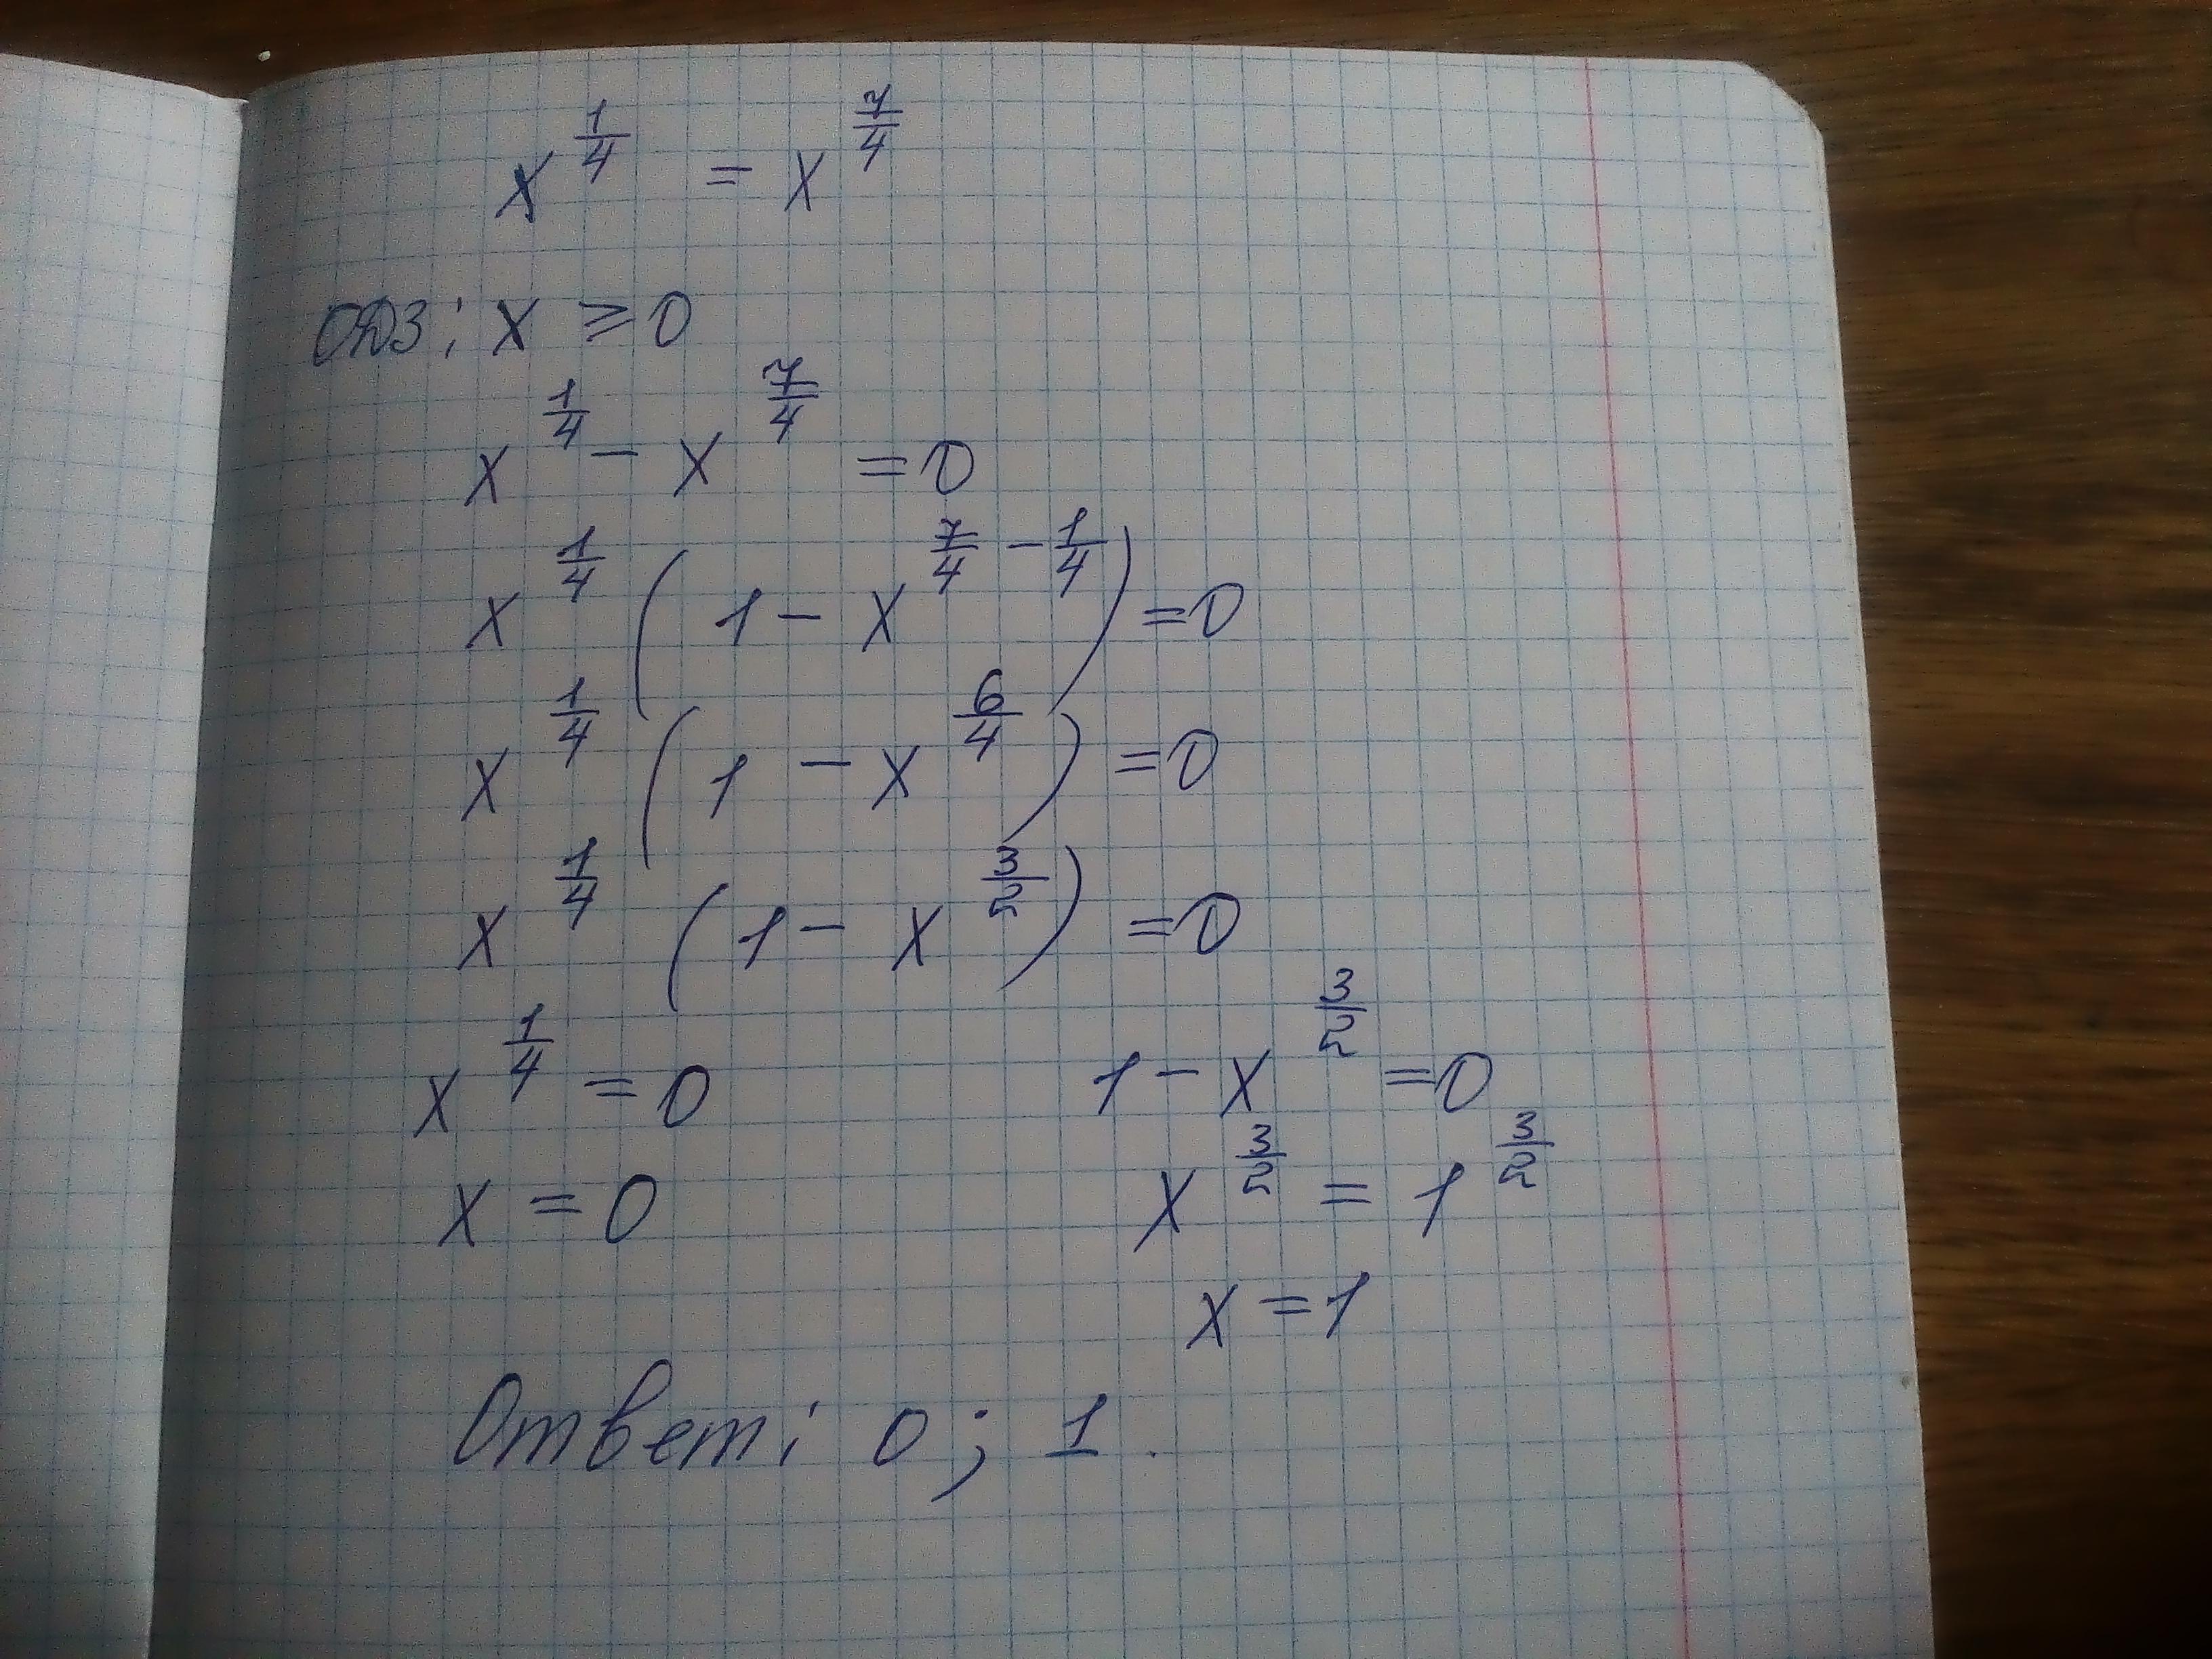 x^(1/4) = x^(7/4)
ОДЗ: x ≥ 0
x^(1/4) − x^(7/4) = 0
x^(1/4) (1 − x^(7/4 − 1/4)) = 0
x^(1/4) (1 − x^(6/4)) = 0
x^(1/4) (1 − x^(3/2)) = 0
x^(1/4) = 0 1 − x^(3/2) = 0
x = 0 x^(3/2) = 1^(3/2)
x = 1
Ответ: 0; 1.